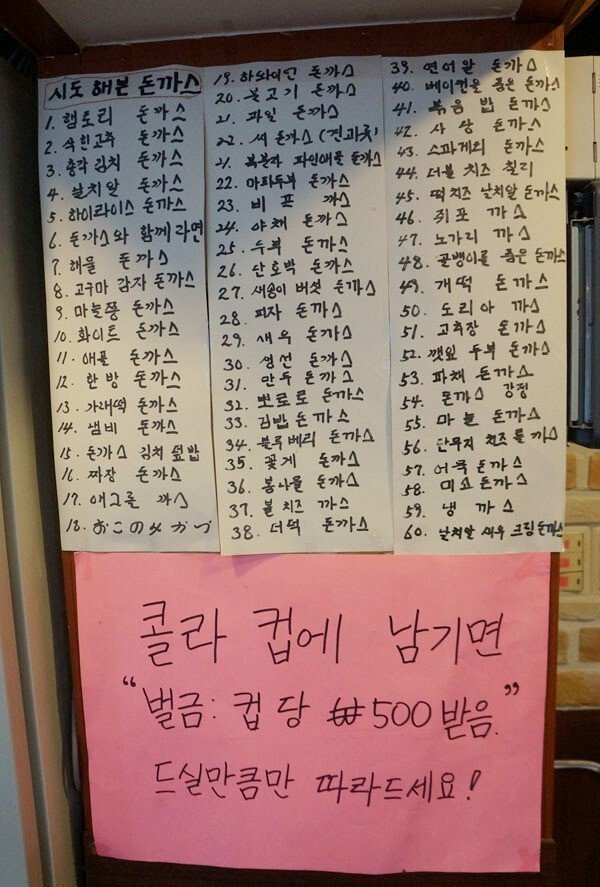 시도 해본 돈까스
1. 햄토리 돈까스
2. 삭힌고추 돈까스
3. 총각김치 돈까스
4. 날치알 돈까스
5. 하이라이스 돈까스
6. 돈까스와 함께 라면
7. 해물 돈까스
8. 고구마 감자 돈까스
9. 마늘쫑 돈까스
10. 화이트 돈까스
11. 애플 돈까스
12. 한방 돈까스
13. 가래떡 돈까스
14. 냄비 돈까스
15. 돈까스 김치 덮밥
16. 짜장 돈까스
17. 애그롤 까스
18. おこのみかつ
19. 하와이안 돈까스
20. 불고기 돈까스
21. 파일 돈까스
22. 씨 돈까스 (견과류)
21. 복불라 파인애플 돈까스
22. 마파두부 돈까스
23. 비프 까스
24. 야채 돈까스
25. 두부 돈까스
26. 단호박 돈까스
27. 새송이 버섯 돈까스
28. 피자 돈까스
29. 새우 돈까스
30. 생선 돈까스
31. 만두 돈까스
32. 뽀로로 돈까스
33. 김밥 돈까스
34. 블루베리 돈까스
35. 꽃게 돈까스
36. 콩나물 돈까스
37. 볼 치즈 까스
38. 더덕 돈까스
39. 연어알 돈까스
40. 베이컨을 품은 돈까스
41. 볶음밥 돈까스
42. 사상 돈까스
43. 스파게티 돈까스
44. 더블 치즈 칠리
45. 떡치즈 날치알 돈까스
46. 쥐포 까스
47. 노가리 까스
48. 골뱅이를 품은 돈까스
49. 개떡 돈까스
50. 도리아 까스
51. 고추장 돈까스
52. 깻잎 두부 돈까스
53. 파채 돈까스
54. 돈까스 강정
55. 마늘 돈까스
56. 단무지 치즈롤 까스
57. 어묵 돈까스
58. 미소 돈까스
59. 냉 까스
60. 날치알 새우 크림 돈까스
콜라 컵에 남기면
"벌금: 컵당 ₩500 받음."
드실만큼만 따라드세요!